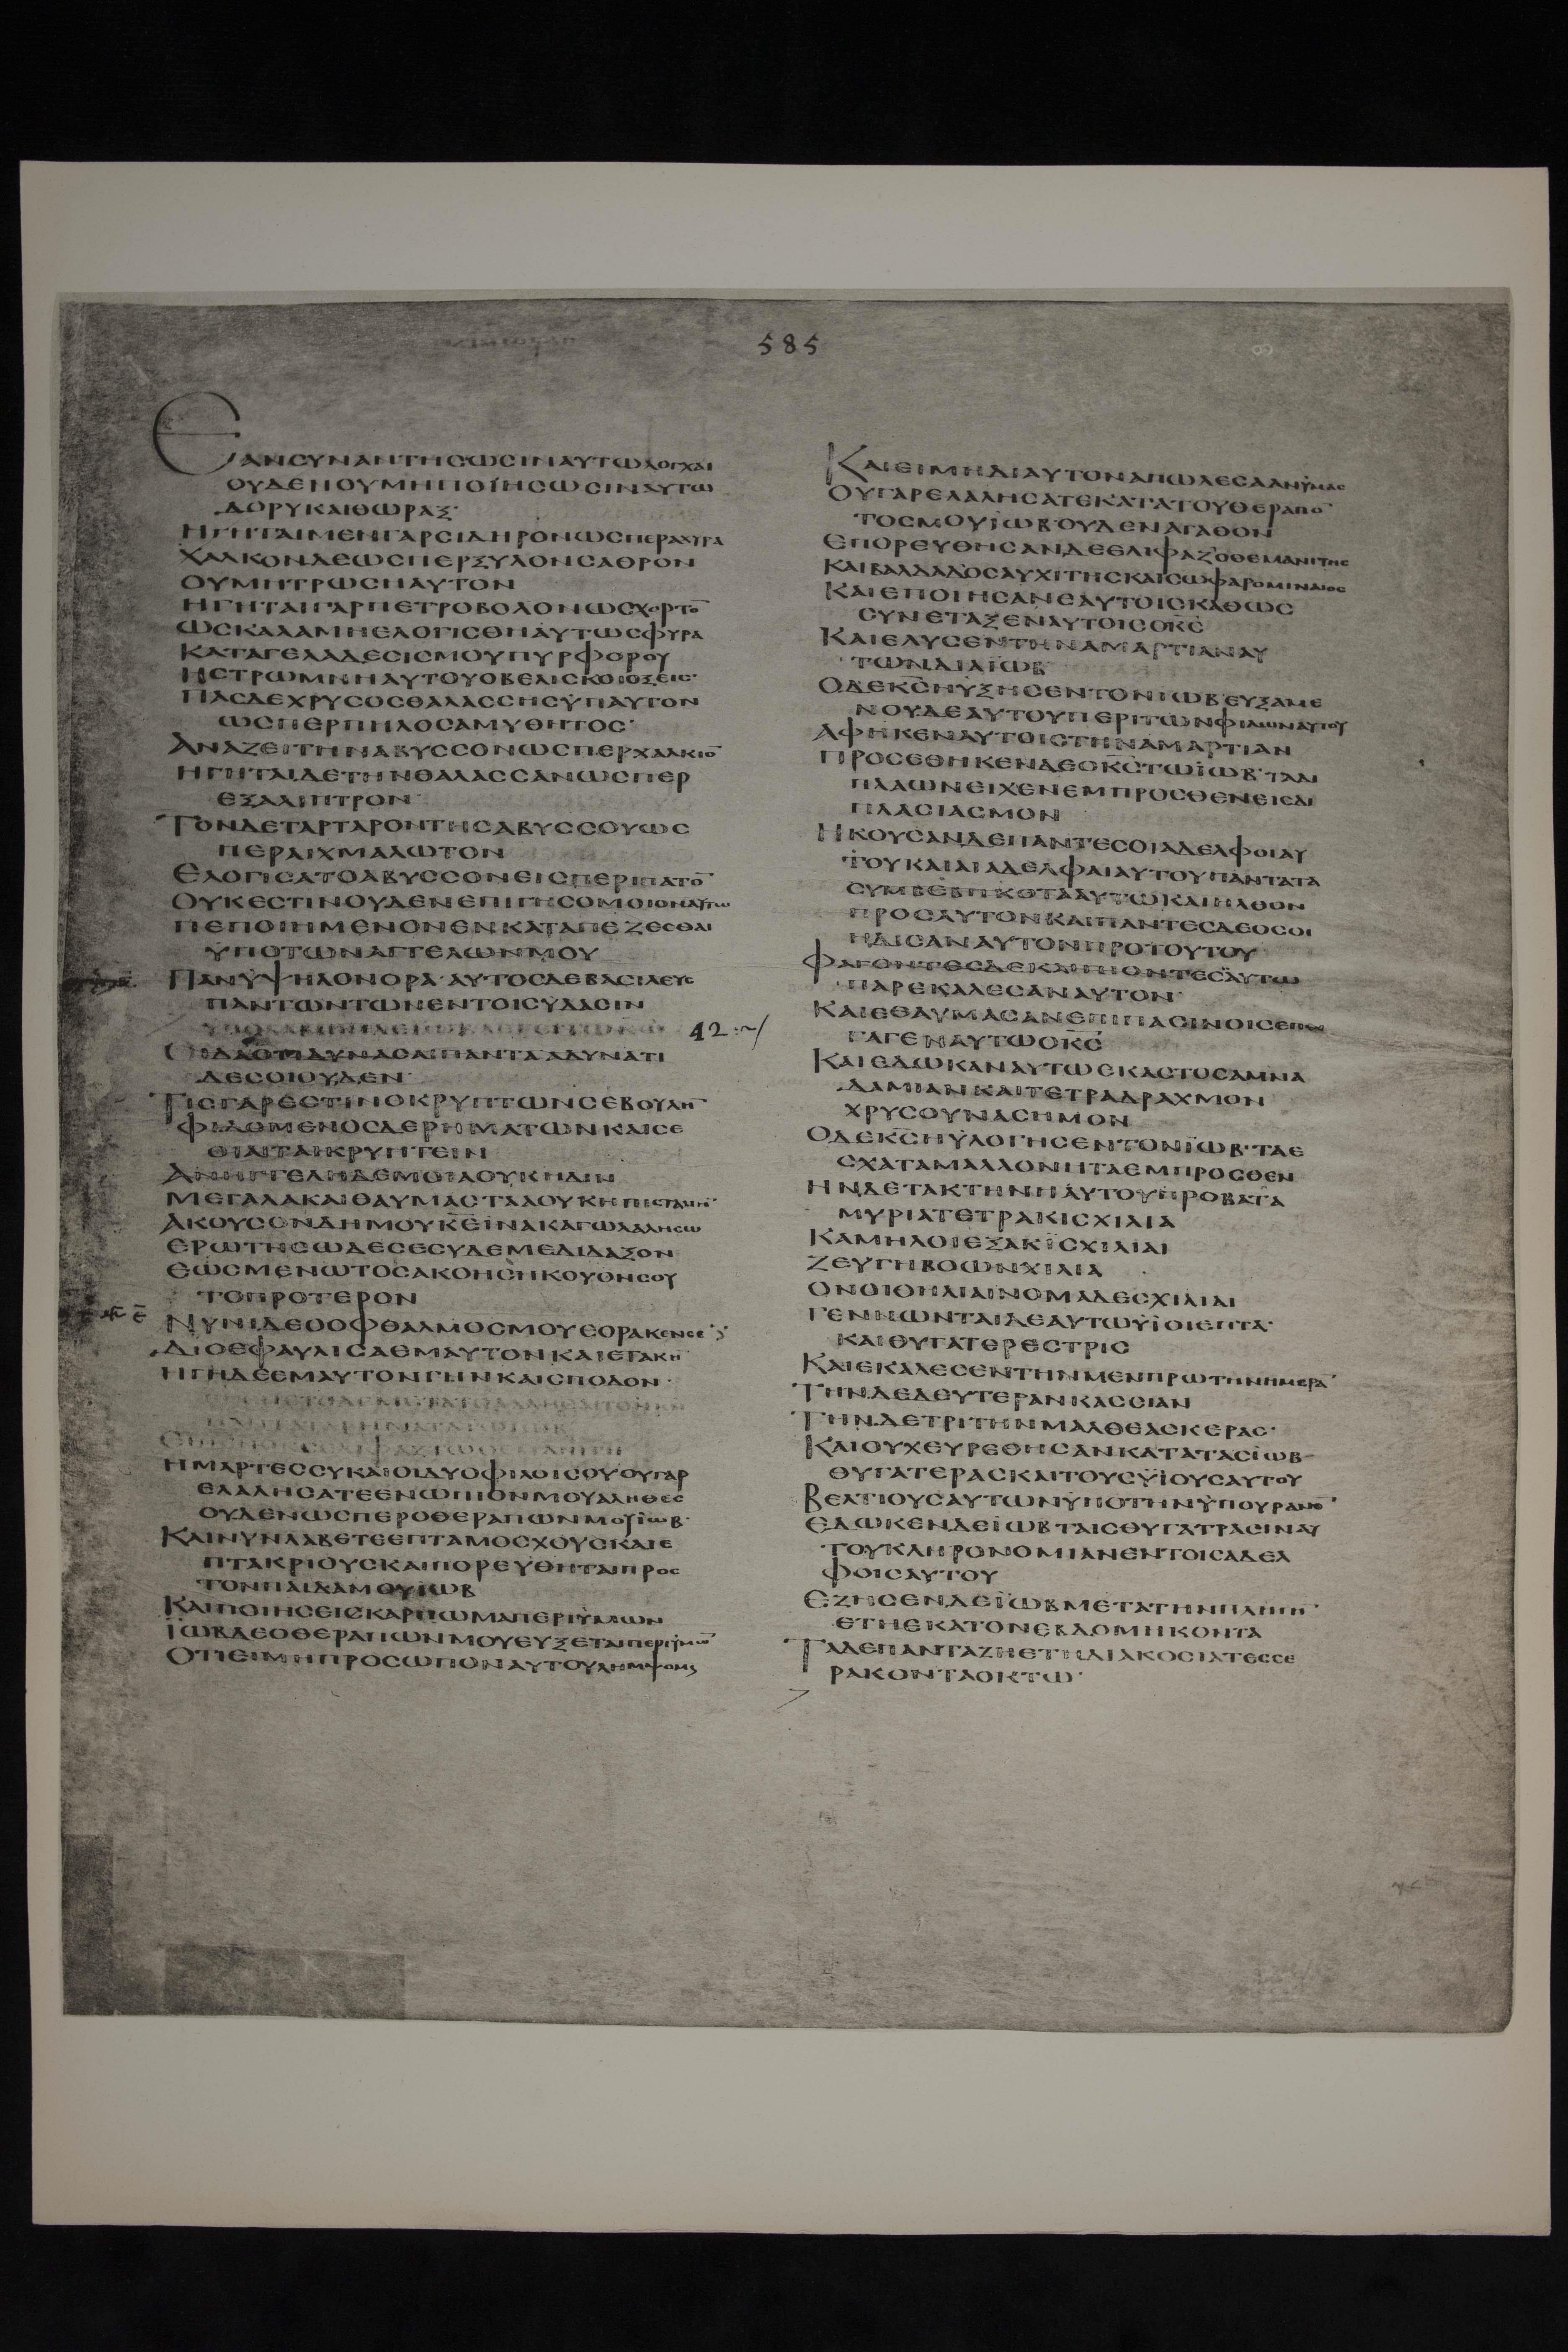 585
ΕΑΝΣΥΝΑΝΤΗΣΩΣΙΝΑΥΤΩΛΟΓΧΑΙ
ΟΥΔΕΝΟΥΜΗΠΟΙΗΣΩΣΙΝΑΥΤΩ
ΔΟΡΥΚΑΙΘΩΡΑΞ·
ΗΓΗΤΑΙΜΕΝΓΑΡΣΙΔΗΡΟΝΩΣΠΕΡΑΧΥΡΑ
ΧΑΛΚΟΝΔΕΩΣΠΕΡΞΥΛΟΝΣΑΘΡΟΝ
ΟΥΜΗΤΡΩΣΗΑΥΤΟΝ
ΗΓΗΤΑΙΓΑΡΠΕΤΡΟΒΟΛΟΝΩΣΧΟΡΤΟ̅
ΩΣΚΑΛΑΜΗΕΛΟΓΙΣΘΗΑΥΤΩΣΦΥΡΑ
ΚΑΤΑΓΕΛΑΔΕΣΙΣΜΟΥΠΥΡΦΟΡΟΥ
ΗΣΤΡΩΜΝΗΑΥΤΟΥΟΒΕΛΙΣΚΟΙΟΞΕΙΣ·
ΠΑΣΔΕΧΡΥΣΟΣΘΑΛΑΣΣΗΣΫΠΑΥΤΟΝ
ΩΣΠΕΡΠΗΛΟΣΑΜΥΘΗΤΟΣ·
ΑΝΑΖΕΙΤΗΝΑΒΥΣΣΟΝΩΣΠΕΡΧΑΛΚΙΟ̅
ΗΓΗΤΑΙΔΕΤΗΝΘΑΛΑΣΣΑΝΩΣΠΕΡ
ΕΞΑΛΙΠΤΡΟΝ·
ΤΟΝΔΕΤΑΡΤΑΡΟΝΤΗΣΑΒΥΣΣΟΥΩΣ
ΠΕΡΑΙΧΜΑΛΩΤΟΝ
ΕΛΟΓΙΣΑΤΟΑΒΥΣΣΟΝΕΙΣΠΕΡΙΠΑΤΟ̅
ΟΥΚΕΣΤΙΝΟΥΔΕΝΕΠΙΓΗΣΟΜΟΙΟΝΑΥΤΩ
ΠΕΠΟΙΗΜΕΝΟΝΕΝΚΑΤΑΠΕΖΕΣΘΑΙ
ΫΠΟΤΩΝΑΓΓΕΛΩΝΜΟΥ
ΠΑΝΫΨΗΛΟΝΟΡΑ·ΑΥΤΟΣΔΕΒΑΣΙΛΕΥΣ
ΠΑΝΤΩΝΤΩΝΕΝΤΟΙΣΥΔΑΣΙΝ
42
ΟΙΔΑΟΤΙΔΥΝΑΣΑΙΠΑΝΤΑΑΔΥΝΑΤΙ
ΔΕΣΟΙΟΥΔΕΝ·
ΤΙΣΓΑΡΕΣΤΙΝΟΚΡΥΠΤΩΝΣΕΒΟΥΛΗ̅
ΦΙΔΟΜΕΝΟΣΔΕΡΗΜΑΤΩΝΚΑΙΣΕ
ΟΙΑΙΤΑΙΚΡΥΠΤΕΙΝ
ΑΝΗΓΓΕΛΗΔΕΜΟΙΑΟΥΚΗΔΙΝ
ΜΕΓΑΛΑΚΑΙΘΑΥΜΑΣΤΑΑΟΥΚΗΠΙΣΤΑΜΗ̅
ΑΚΟΥΣΟΝΔΗΜΟΥΚ̅Ε̅ΪΝΑΚΑΓΩΛΑΛΗΣΩ
ΕΡΩΤΗΣΩΔΕΣΕΣΥΔΕΜΕΔΙΔΑΞΟΝ
ΕΩΣΜΕΝΩΤΟΣΑΚΟΗΣΗΚΟΥΟΝΣΟΥ
ΤΟΠΡΟΤΕΡΟΝ
ΝΥΝΙΔΕΟΟΦΘΑΛΜΟΣΜΟΥΕΟΡΑΚΕΝΣΕ
ΔΙΟΕΦΑΥΛΙΣΑΕΜΑΥΤΟΝΚΑΙΕΤΑΚΗ̅
ΗΓΗΔΕΕΜΑΥΤΟΝΓΗΝΚΑΙΣΠΟΔΟΝ·
ΗΜΑΡΤΕΣΣΥΚΑΙΟΙΔΥΟΦΙΛΟΙΣΟΥΟΥΓΑΡ
ΕΛΑΛΗΣΑΤΕΕΝΩΠΙΟΝΜΟΥΑΛΗΘΕΣ
ΟΥΔΕΝΩΣΠΕΡΟΘΕΡΑΠΩΝΜΟΥΪΩΒ·
ΚΑΙΝΥΝΛΑΒΕΤΕΕΠΤΑΜΟΣΧΟΥΣΚΑΙΕ
ΠΤΑΚΡΙΟΥΣΚΑΙΠΟΡΕΥΘΗΤΑΙΠΡΟΣ
ΤΟΝΠΑΙΔΑΜΟΥΪΩΒ
ΚΑΙΠΟΙΗΣΕΙΣΚΑΡΠΩΜΑΠΕΡΙΫΜΩΝ
ΪΩΒΔΕΟΘΕΡΑΠΩΝΜΟΥΕΥΞΕΤΑΙΠΕΡΙΫΜΩ̅
ΟΤΙΕΙΜΗΠΡΟΣΩΠΟΝΑΥΤΟΥΛΗΜΨΟΜΑΙ
ΚΑΙΕΙΜΗΔΙΑΥΤΟΝΑΠΩΛΕΣΑΑΝΫΜΑΣ
ΟΥΓΑΡΕΛΑΛΗΣΑΤΕΚΑΤΑΤΟΥΘΕΡΑΠΟ̅
ΤΟΣΜΟΥΪΩΒ·ΟΥΔΕΝΑΓΑΘΟΝ
ΕΠΟΡΕΥΘΗΣΑΝΔΕΕΛΙΦΑΖΟΘΕΜΑΝΙΤΗΣ
ΚΑΙΒΑΛΔΑΔΟΣΑΥΧΙΤΗΣΚΑΙΣΩΦΑΡΟΜΙΝΑΙΟΣ
ΚΑΙΕΠΟΙΗΣΑΝΕΑΥΤΟΙΣΚΑΘΩΣ
ΣΥΝΕΤΑΞΕΝΑΥΤΟΙΣΟΚ̅Σ̅
ΚΑΙΕΛΥΣΕΝΤΗΝΑΜΑΡΤΙΑΝΑΥ
ΤΩΝΔΙΑΪΩΒ
ΟΔΕΚ̅Σ̅ΗΥΞΗΣΕΝΤΟΝΙΩΒΕΥΞΑΜΕ
ΝΟΥΔΕΑΥΤΟΥΠΕΡΙΤΩΝΦΙΛΩΝΑΥΤΟΥ
ΑΦΗΚΕΝΑΥΤΟΙΣΤΗΝΑΜΑΡΤΙΑΝ
ΠΡΟΣΕΘΗΚΕΝΔΕΟΚ̅Σ̅ΤΩΪΩΒ·ΤΑΔΙ
ΠΛΑΩΝΕΙΧΕΝΕΜΠΡΟΣΘΕΝΕΙΣΔΙ
ΠΛΑΣΙΑΣΜΟΝ
ΗΚΟΥΣΑΝΔΕΠΑΝΤΕΣΟΙΑΔΕΛΦΟΙΑΥ
ΤΟΥΚΑΙΑΙΑΔΕΛΦΑΙΑΥΤΟΥΠΑΝΤΑΤΑ
ΣΥΜΒΕΒΗΚΟΤΑΑΥΤΩΚΑΙΗΛΘΟΝ
ΠΡΟΣΑΥΤΟΝΚΑΙΠΑΝΤΕΣΔΕΟΣΟΙ
ΗΔΙΣΑΝΑΥΤΟΝΠΡΟΤΟΥΤΟΥ
ΦΑΓΟΝΤΕΣΔΕΚΑΙΠΙΟΝΤΕΣΑΥΤΩ
ΠΑΡΕΚΑΛΕΣΑΝΑΥΤΟΝ·
ΚΑΙΕΘΑΥΜΑΣΑΝΕΠΙΠΑΣΙΝΟΙΣΕΠΗ
ΓΑΓΕΝΑΥΤΩΟΚ̅Σ̅
ΚΑΙΕΔΩΚΑΝΑΥΤΩΕΚΑΣΤΟΣΑΜΝΑ
ΔΑΜΙΑΝΚΑΙΤΕΤΡΑΔΡΑΧΜΟΝ
ΧΡΥΣΟΥΝΑΣΗΜΟΝ
ΟΔΕΚ̅Σ̅ΗΫΛΟΓΗΣΕΝΤΟΝΪΩΒ·ΤΑΕ
ΣΧΑΤΑΜΑΛΛΟΝΗΤΑΕΜΠΡΟΣΘΕΝ
ΗΝΔΕΤΑΚΤΗΝΗΑΥΤΟΥΠΡΟΒΑΤΑ
ΜΥΡΙΑΤΕΤΡΑΚΙΣΧΙΛΙΑ
ΚΑΜΗΛΟΙΕΞΑΚΙΣΧΙΛΙΑΙ
ΖΕΥΓΗΒΟΩΝΧΙΛΙΑ
ΟΝΟΙΘΗΛΙΑΙΝΟΜΑΔΕΣΧΙΛΙΑΙ
ΓΕΝΝΩΝΤΑΙΔΕΑΥΤΩΫΙΟΙΕΠΤΑ·
ΚΑΙΘΥΓΑΤΕΡΕΣΤΡΙΣ
ΚΑΙΕΚΑΛΕΣΕΝΤΗΝΜΕΝΠΡΩΤΗΝΗΜΕΡΑ̅
ΤΗΝΔΕΔΕΥΤΕΡΑΝΚΑΣΣΙΑΝ
ΤΗΝΔΕΤΡΙΤΗΝΜΑΛΘΕΑΣΚΕΡΑΣ·
ΚΑΙΟΥΧΕΥΡΕΘΗΣΑΝΚΑΤΑΤΑΣΪΩΒ
ΘΥΓΑΤΕΡΑΣΚΑΙΤΟΥΣΫΙΟΥΣΑΥΤΟΥ
ΒΕΛΤΙΟΥΣΑΥΤΩΝΫΠΟΤΗΝΫΠΟΥΡΑΝΟ̅
ΕΔΩΚΕΝΔΕΪΩΒΤΑΙΣΘΥΓΑΤΡΑΣΙΝΑΥ
ΤΟΥΚΛΗΡΟΝΟΜΙΑΝΕΝΤΟΙΣΑΔΕΛ
ΦΟΙΣΑΥΤΟΥ
ΕΖΗΣΕΝΔΕΪΩΒΜΕΤΑΤΗΝΠΛΗΓΗ̅
ΕΤΗΕΚΑΤΟΝΕΒΔΟΜΗΚΟΝΤΑ
ΤΑΔΕΠΑΝΤΑΖΗΕΤΗΔΙΑΚΟΣΙΑΤΕΣΣΕ
ΡΑΚΟΝΤΑΟΚΤΩ·